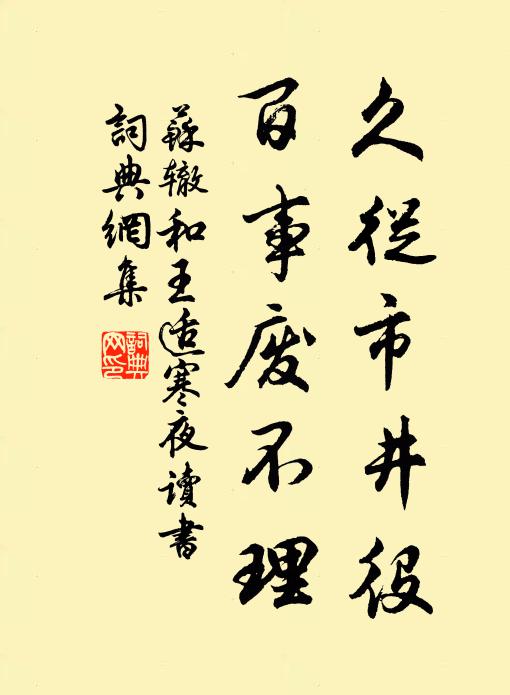 久從市井役
百事廢不理
蘇辙和王适寒夜讀書
詞典網集
詞典網印